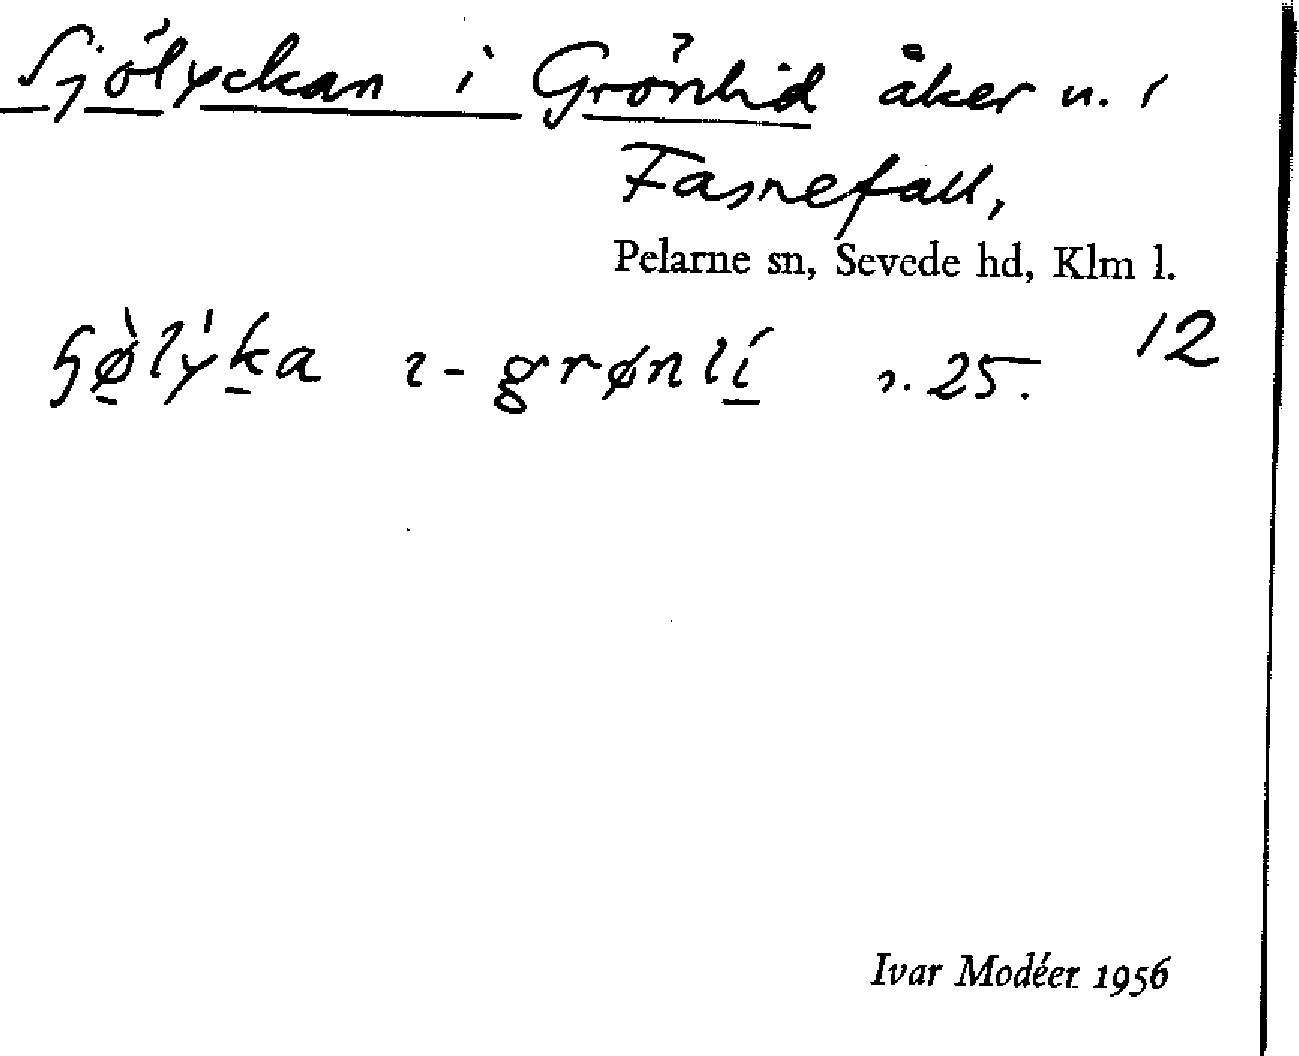 Sjölyckan i Grönlid åker n. i
Fasnefall,
Pelarne sn, Sevede hd, Klm l.
12
ɧø̀lýka ɩ-grønlí n. 25.
Ivar Modéer 1956